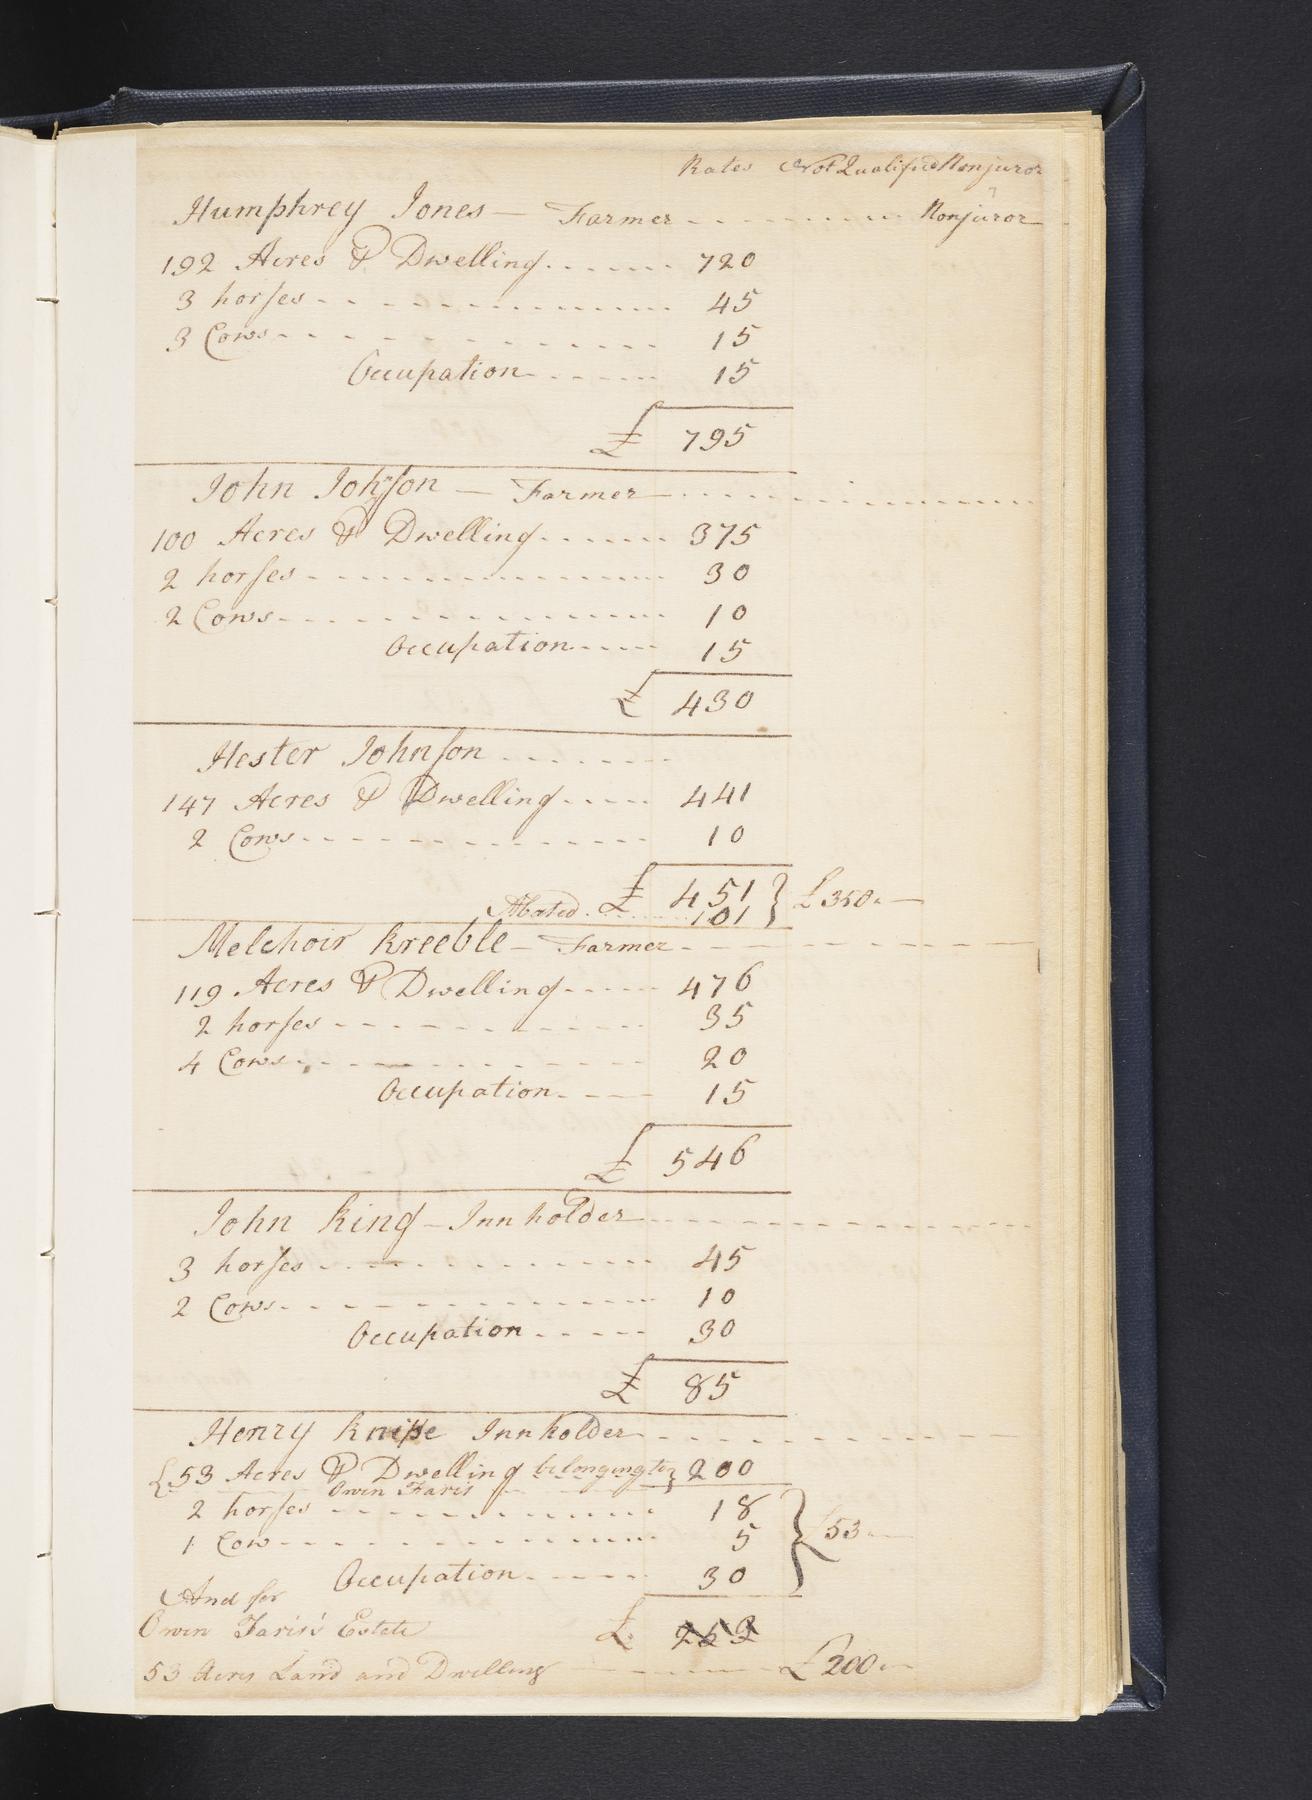 Rates Not Qualified Nonjuror
Humphrey Jones — Farmer - - - - - Nonjuror
192 Acres & Dwelling. . . . . . . 720
3 horses - - - - - - - - 45
3 Cows - - - - - - - - 15
Occupation - - - - - - 15
£ 795
John Johnson — Farmer - - - - - - - -
100 Acres & Dwelling . . . . . . 375
2 horses - - - - - - - - 30
2 Cows - - - - - - - - 10
Occupation - - - - - 15
£ 430
Hester Johnson . . . . . . . .
147 Acres & Dwelling . . . . . 441
2 Cows - - - - - - - - 10
£ 451 } £350. —
Abated . . . . . . . . 101
Melchoir Kreeble — Farmer - - - - - - - -
119 Acres & Dwelling - - - - - 476
2 horses - - - - - - - - 35
4 Cows - - - - - - - - 20
Occupation - - - - 15
£ 546
John King — Innholder - - - - - - - -
3 horses - - - - - - - - 45
2 Cows - - - - - - - - 10
Occupation - - - - - 30
£ 85
Henry Knipe Innholder - - - - - - - -
{ 53 Acres & Dwelling belonging to } 200
Owin Faris
2 horses - - - - - - - - 18
1 Cow - - - - - - - - 5 } £53 —
Occupation - - - - - 30
And for
Owin Faris's Estate £ 253
53 Acres Land and Dwelling - - - - £200. —